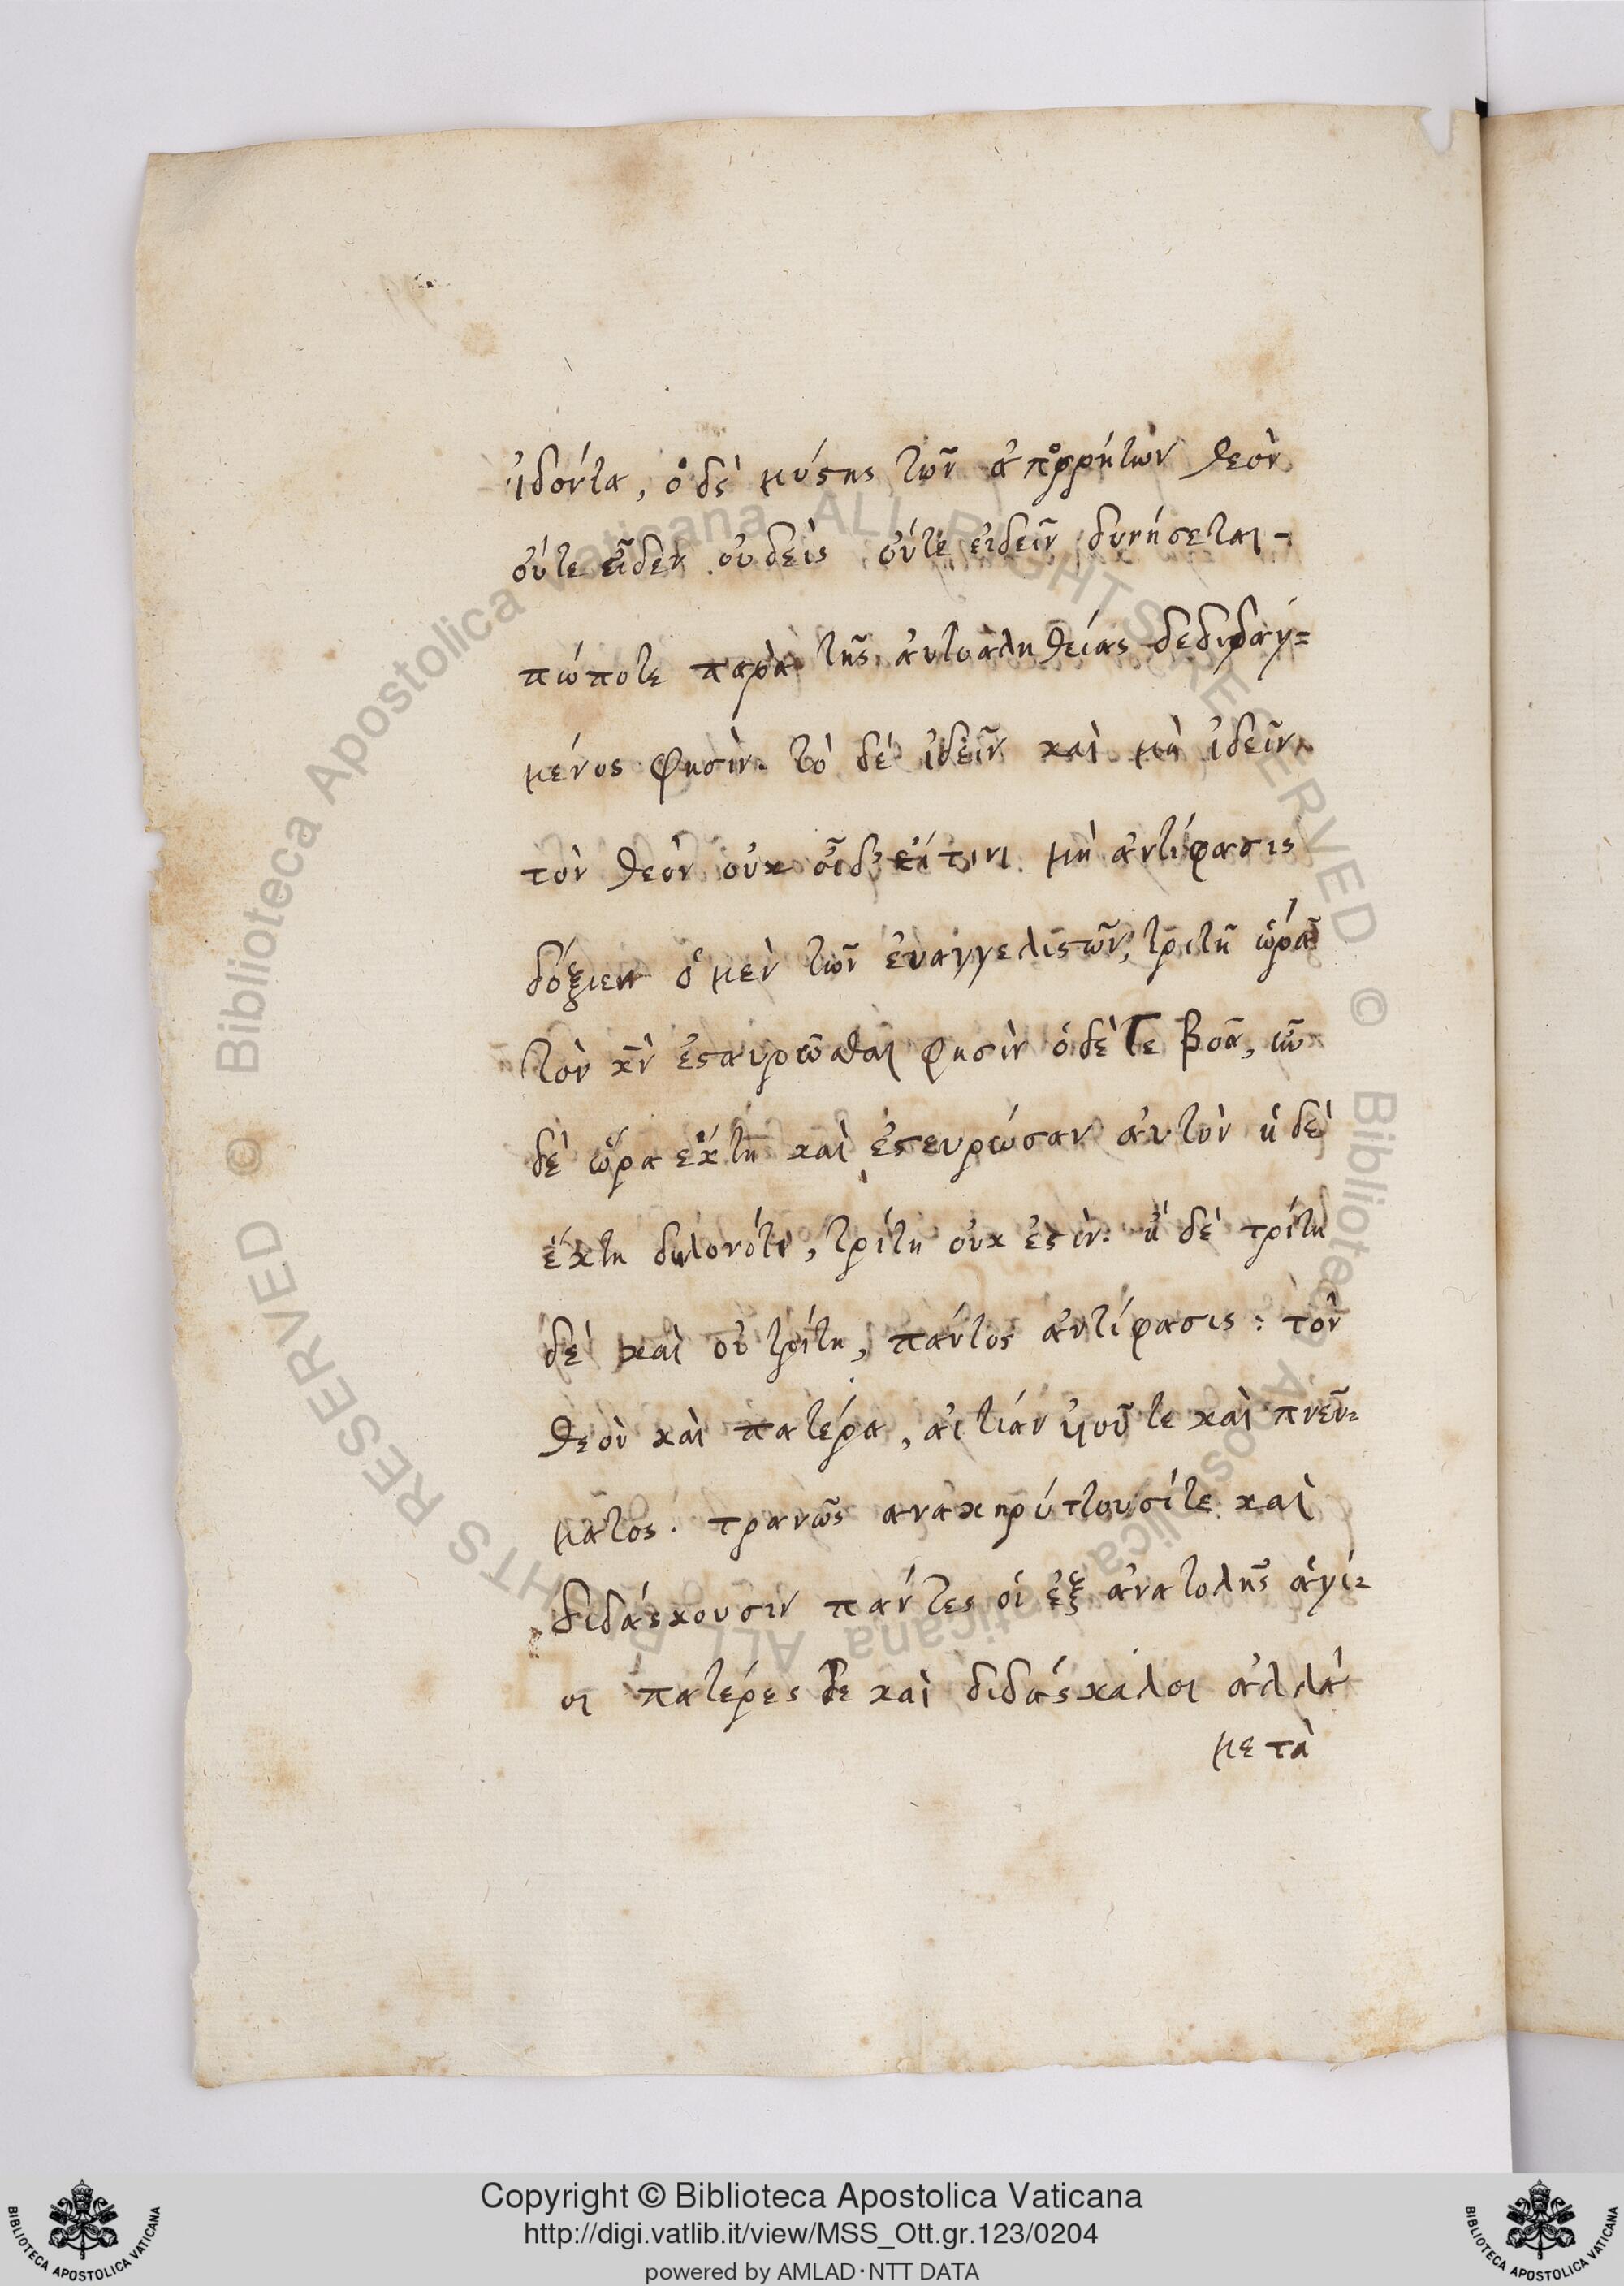 ἰδόντα, ὁ δὲ μύστης τῶν ἀποῤῥήτων θεὸν
οὔτε εἶδεν οὐδεὶς οὔτε εἰδεῖν δυνήσεται -
πώποτε παρὰ τῆς αὐτοαληθείας δεδιδαγ=
μένος φησὶν. τὸ δὲ ἰδεῖν καὶ μὴ ἰδεῖν
τὸν θεὸν οὐκ οἶδ' εἴ τινι μὴ ἀντίφασις
δόξιεν ὁ μὲν τῶν ἐυαγγελιστῶν, τρίτη ὥρα
τὸν χν ἐσταυρῶσθαι φησὶν ὁ δὲ Γε βοᾶ, ἦν
δὲ ὥρα ἕκτη καὶ ἐστευρώσαν αὐτὸν ἡ δὲ
ἕκτη δηλονότι, τρίτη οὐκ ἐστὶν. ἡ δὲ τρίτη
δέ καὶ οὐ τρίτη, πάντος ἀντίφασις : τὸν
θεὸν καὶ πατέρα, αἰτίαν ὑιοῦ τε καὶ πνεῦ=
ματος. τρανῶς ανακηρύττουσίτε καὶ
διδάσκουσιν πάντες οἱ ἐξ ἀνατολῆς ἁγί=
οι πατέρες τε καὶ διδάσκαλοι ἀλλὰ
μετὰ
© Biblioteca Apostolica Vaticana ALL RIGHTS RESERVED © Biblioteca Apostolica Vaticana ALL RIGHTS RESERVED
Copyright © Biblioteca Apostolica Vaticana
http://digi.vatlib.it/view/MSS_Ott.gr.123/0204
powered by AMLAD·NTT DATA
BIBLIOTECA APOSTOLICA VATICANA
BIBLIOTECA APOSTOLICA VATICANA